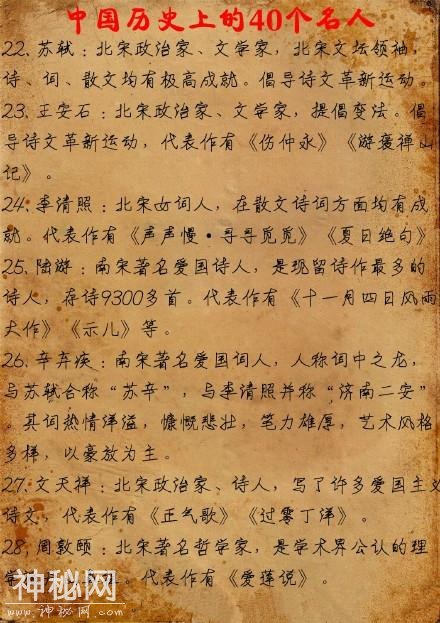 中国历史上的40个名人
22、苏轼：北宋政治家、文学家，北宋文坛领袖，
诗、词、散文均有极高成就。倡导诗文革新运动。
23、王安石：北宋政治家、文学家，提倡变法。倡
导诗文革新运动，代表作有《伤仲永》《游褒禅山
记》。
24、李清照：北宋女词人，在散文诗词方面均有成
就。代表作有《声声慢·寻寻觅觅》《夏日绝句》
25、陆游：南宋著名爱国诗人，是现留诗作最多的
诗人，存诗9300多首。代表作有《十一月四日风雨
大作》《示儿》等。
26、辛弃疾：南宋著名爱国词人，人称词中之龙，
与苏轼合称“苏辛”，与李清照并称“济南二安”
。其词热情洋溢，慷慨悲壮，笔力雄厚，艺术风格
多样，以豪放为主。
27、文天祥：北宋政治家、诗人，写了许多爱国主义
诗文，代表作有《正气歌》《过零丁洋》。
28、周敦颐：北宋著名哲学家，是学术界公认的理
代表作有《爱莲说》。
神秘网
www.神秘网.com